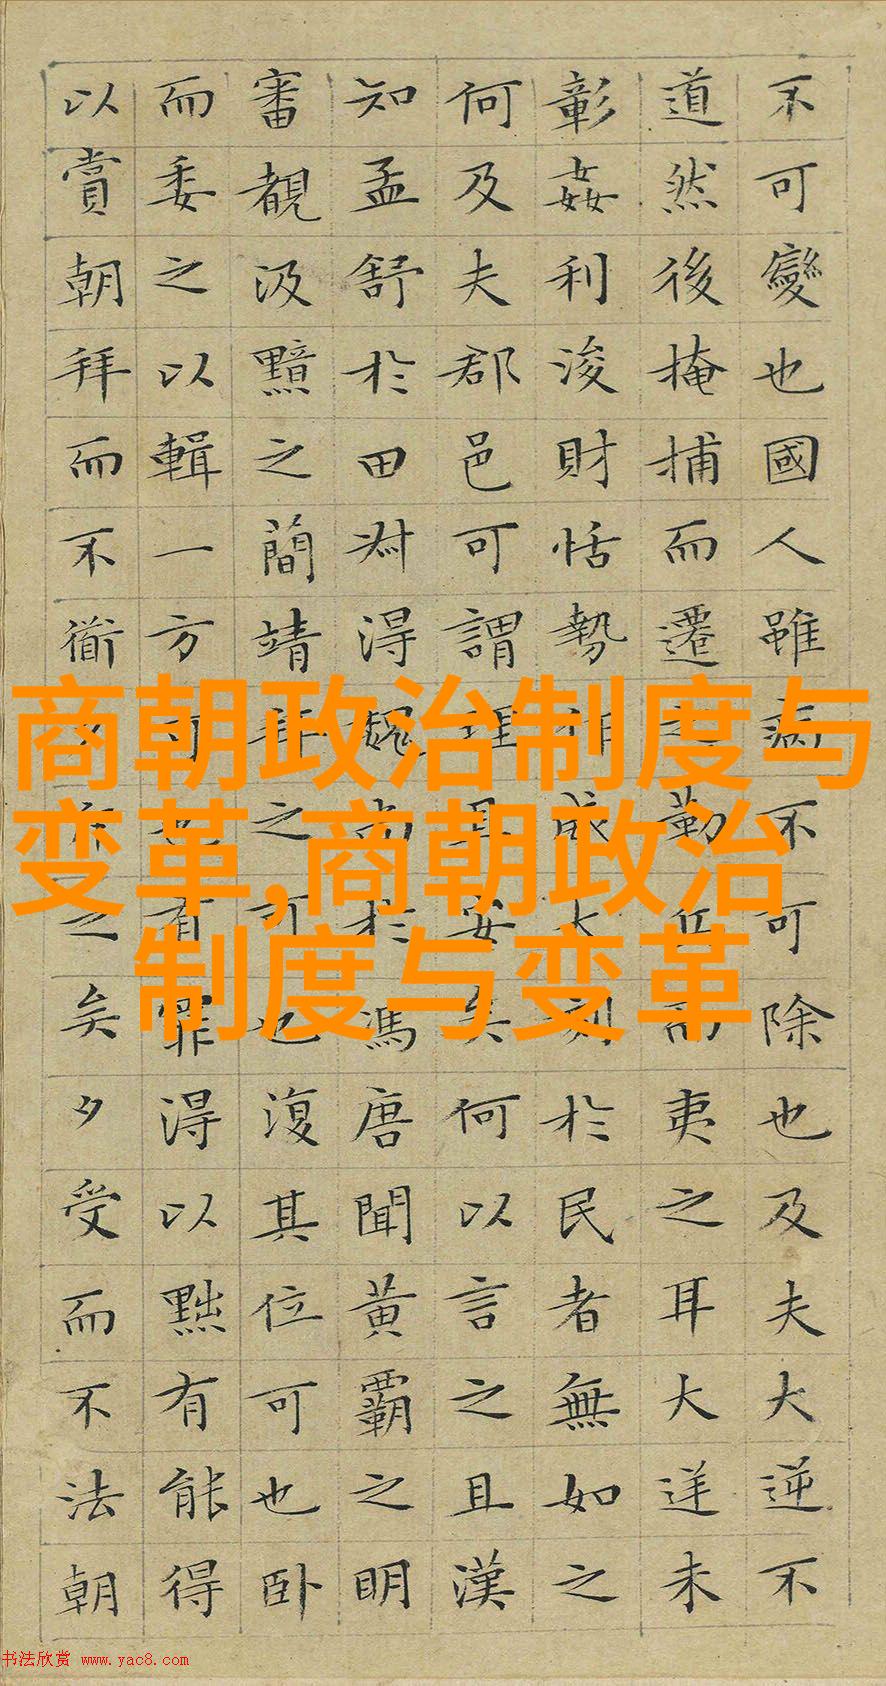 不可變也國人雖病不可除也及夫大逆不
道然後掩捕而遷之勤兵而夷之耳大逆未
彰姦利浚財怙勢作威大刻於民者無如之
何及夫郡邑可謂理且安矣何以言之且漢
知孟舒於田叔得魏尚於馮唐聞黃霸之明
審覩汲黯之簡靖拜之可也復其位可也臥
而委之以輯一方可也有罪得以黜有能得
以賞朝拜而不衜夕斥之矣夕受而不法朝
商朝政治制度与
变革,商朝政治
制度与变革
书法欣赏 www.yac8.com